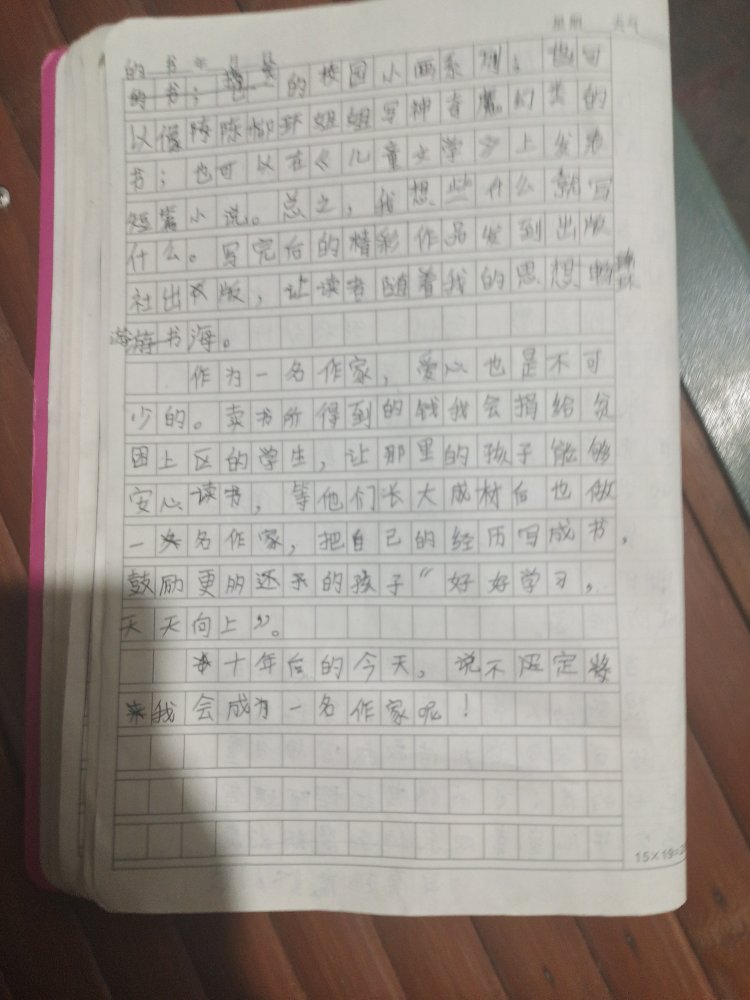 的书；的校园小画系列；也可
以像陈柳环姐姐写神奇魔幻类的
书；也可以在《儿童文学》上发表
短篇小说。总之，我想些什么就写
什么。写完后的精彩作品发到出版
社出版，让读者随着我的思想畅
游书海。
作为一名作家，爱心也是不可
少的。卖书所得到的钱我会捐给贫
困上区的学生，让那里的孩子能够
安心读书，等他们长大成材后也做
一名作家，把自己的经历写成书，
鼓励更的孩子“好好学习，
天天向上”。
十年后的今天，说不定将
来我会成为一名作家呢！
15×19=2